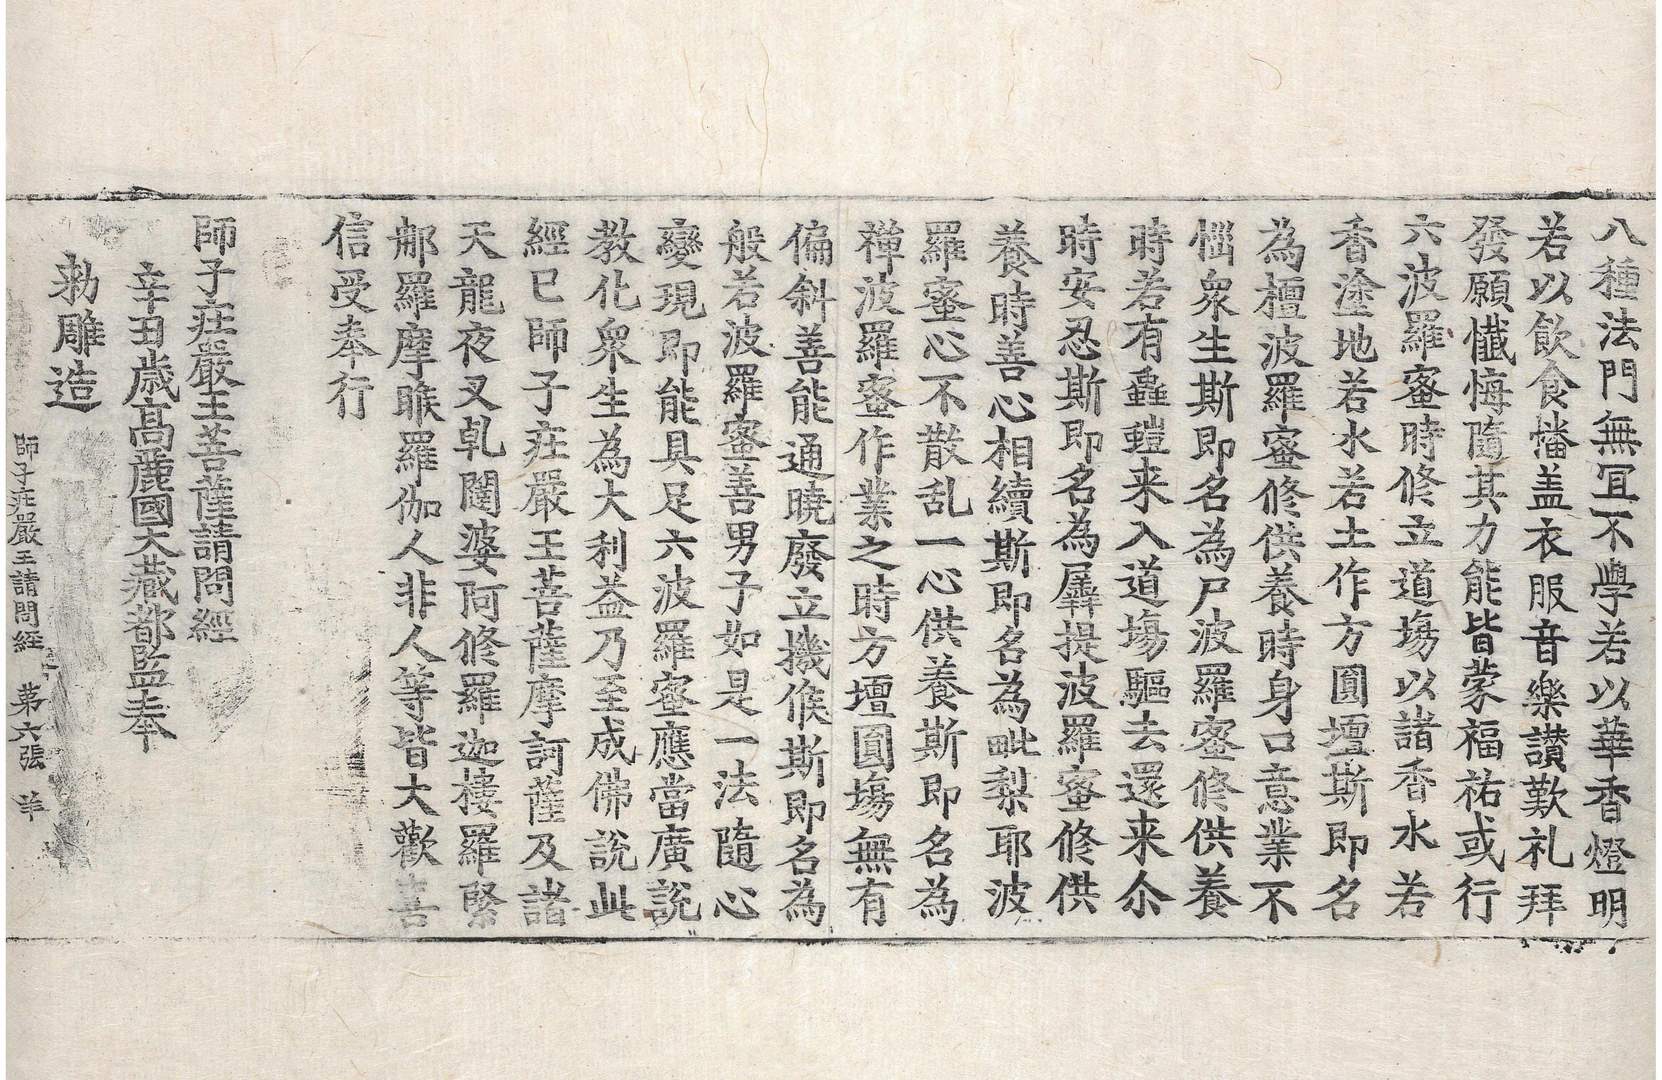 八種法門無冝不學若以華香燈明
若以飲食幡盖衣服音樂讃歎礼拜
發願懺悔隨其力能皆蒙福祐或行
六波羅蜜時修立道塲以諸香水若
香塗地若水若土作方圓壇斯即名
為檀波羅蜜修供養時身口意業不
惱衆生斯即名為尸波羅蜜修供養
時若有蟲螘来入道塲驅去還来尒
時安忍斯即名為羼提波羅蜜修供
養時善心相續斯即名為毗梨耶波
羅蜜心不散乱一心供養斯即名為
禪波羅蜜作業之時方壇圓塲無有
偏斜善能通曉廢立機候斯即名為
般若波羅蜜善男子如是一法隨心
變現即能具足六波羅蜜應當廣說
教化衆生為大利益乃至成佛說此
經已師子莊嚴王菩薩摩訶薩及諸
天龍夜叉乹闥婆阿修羅迦樓羅緊
那羅摩睺羅伽人非人等皆大歡喜
信受奉行
師子莊嚴王菩薩請問經
辛丑歳高麗國大藏都監奉
勅雕造
師子莊嚴王請問經 第六張 羊